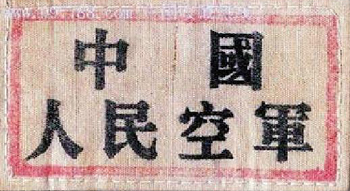 中國
人民空軍